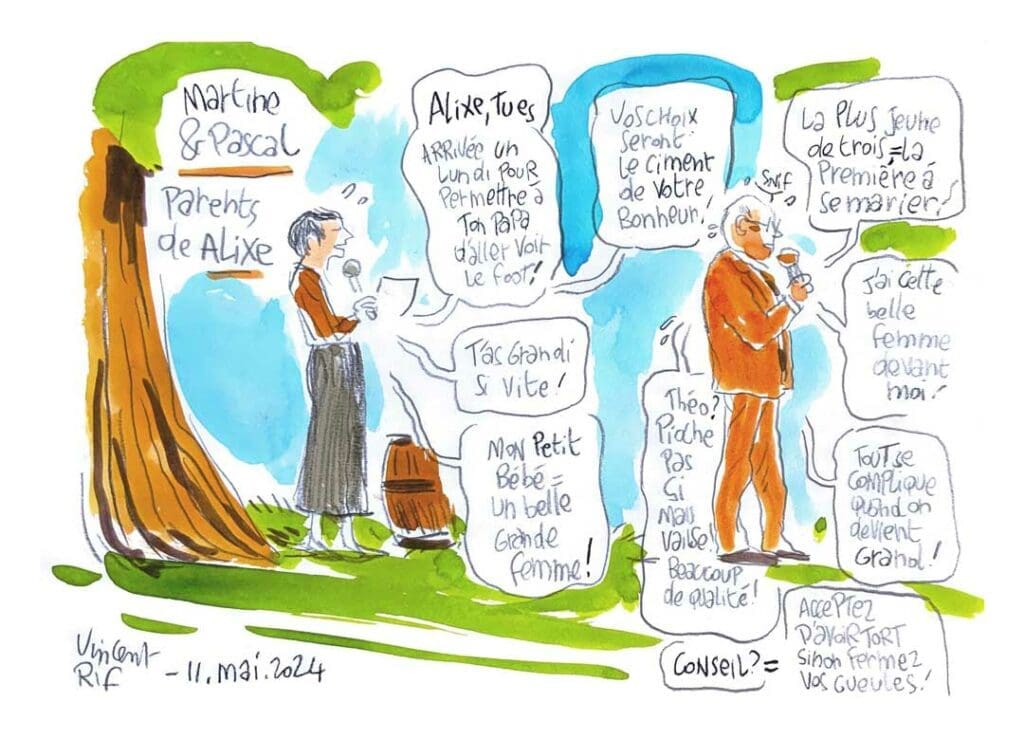 Martine
& Pascal
Parents
de Alixe
Alixe, Tu es
ARRIVÉE un
Lundi POUR
Permettre à
Ton Papa
d'aller voir
Le foot!
Vos choix
seront
Le ciment
de votre
Bonheur!
T'as Grandi
si vite!
Mon Petit
Bébé =
un belle
Grande
femme!
Snif
La PLUS jeune
de trois = La
Première à
se marier!
J'ai cette
belle
femme
devant
moi!
Théo?
Pioche
Pas
si
mau
vaise!
Beaucoup
de qualité!
Tout se
complique
quand on
devient
Grand!
Conseil? =
Acceptez
D'avoir TORT
sinon fermez
vos gueules!
Vincent
Rif
- 11. mai. 2024